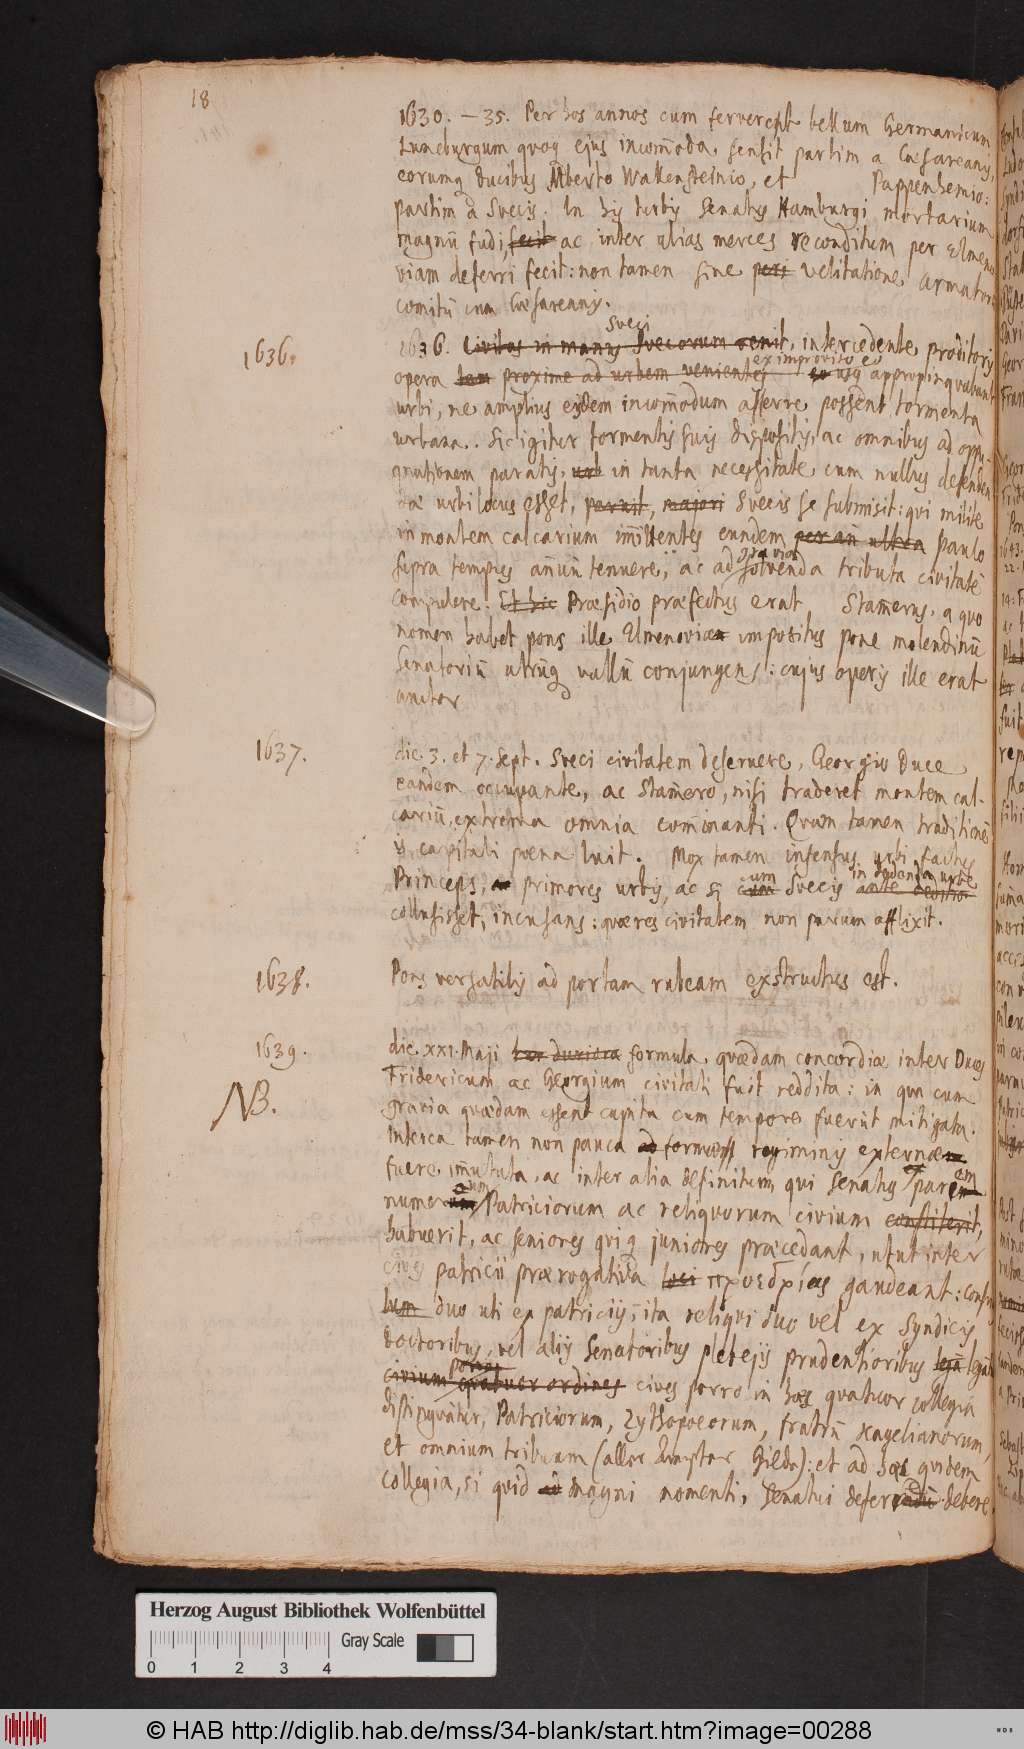 18
1630. – 35. Per hos annos cum ferveret bellum Germanicum
Luneburgum quoq ejus incom̄oda sensit partim a Cæsareanis,
eorumq Ducibus Alberto Wallensteinio, et Pappenhemio:
partim a Svecis. In his turbis Senatus Hamburgi mortarium
magnū fudi, fecit ac inter alias merces reconditum per Elmenu
viam deferri fecit: non tamen sine peri velitatione armator
comitū cum Cæsareanis.
Sveci
1636.
1636. Civitas in manus Svecorum venit, intercedente proditoris
ex improviso eo
opera tam proxime ad urbem venientes eo usq appropinqvabant
urbi, ne amplius eidem incom̄odum afferre possent tormenta
urbana. Sic igitur tormentis suis dispositis, ac omnibus ad oppu-
gnationem paratis, urb in tanta necessitate cum nullus defenden
dæ urbi locus esset, paruit, majori Svecis se submisit: qvi milite
in montem calcarium im̄ittentes eundem per an̄ ultra paulo
supra tempus an̄uū tenuere, ac ad solvenda tributa civitatē
gravia
compulere: Et hic Præsidio præfectus erat Stam̄erus, a quo
nomen habet pons ille Elmenoviæ impositus pone molendinū
Senatoriū utrūq vallū conjungens: cujus operis ille erat
auctor
1637.
die 3. et 7. Sept. Sveci civitatem deseruere, Georgio Duce
eandem occupante, ac Stam̄ero, nisi traderet montem cal-
cariū, extrema omnia com̄inanti. Qvam tamen traditionē
is capitali poena luit. Mox tamen infensus urbi factus
Princeps, primores urbis, ac si cum Svecis ante
um in dedenda urbe
collusisset, incusans: quæ res civitatem non parum afflixit.
1638.
Pons versatilis ad portam rubeam exstructus est.
1639.
NB.
die XXI. Maji formula quædam concordiæ inter Duces
Fridericum ac Georgium civitati fuit reddita: in qua cum
gravia quædam essent capita cum tempore fuerūt mitigata.
Interea tamen non pauca ad formam regiminis externæ
fuere im̄utata, ac inter alia definitum, qui Senatus ex parem
numerum Patriciorum ac reliquorum civium constiterit,
habuerit, ac seniores qviq juniores præcedant, utut inter
cives patricii prærogativa loci προεδρίας gaudeant: consu
lum duo uti ex patriciis, ita reliqvi duo vel ex Syndicis
doctoribus, vel aliis Senatoribus plebejis prudentioribus
civium quatuor ordines cives porro in hæc quatuor collegia
porro
distingvātur, Patriciorum, Zythopoeorum, fratrū Kagelianorum,
et omnium tribuum (aller Ampter Gilda): et ad hæc qvidem
collegia, si quid magni momenti, Senatui deferendū debere
Herzog August Bibliothek Wolfenbüttel
Gray Scale
0 1 2 3 4
© HAB http://diglib.hab.de/mss/34-blank/start.htm?image=00288